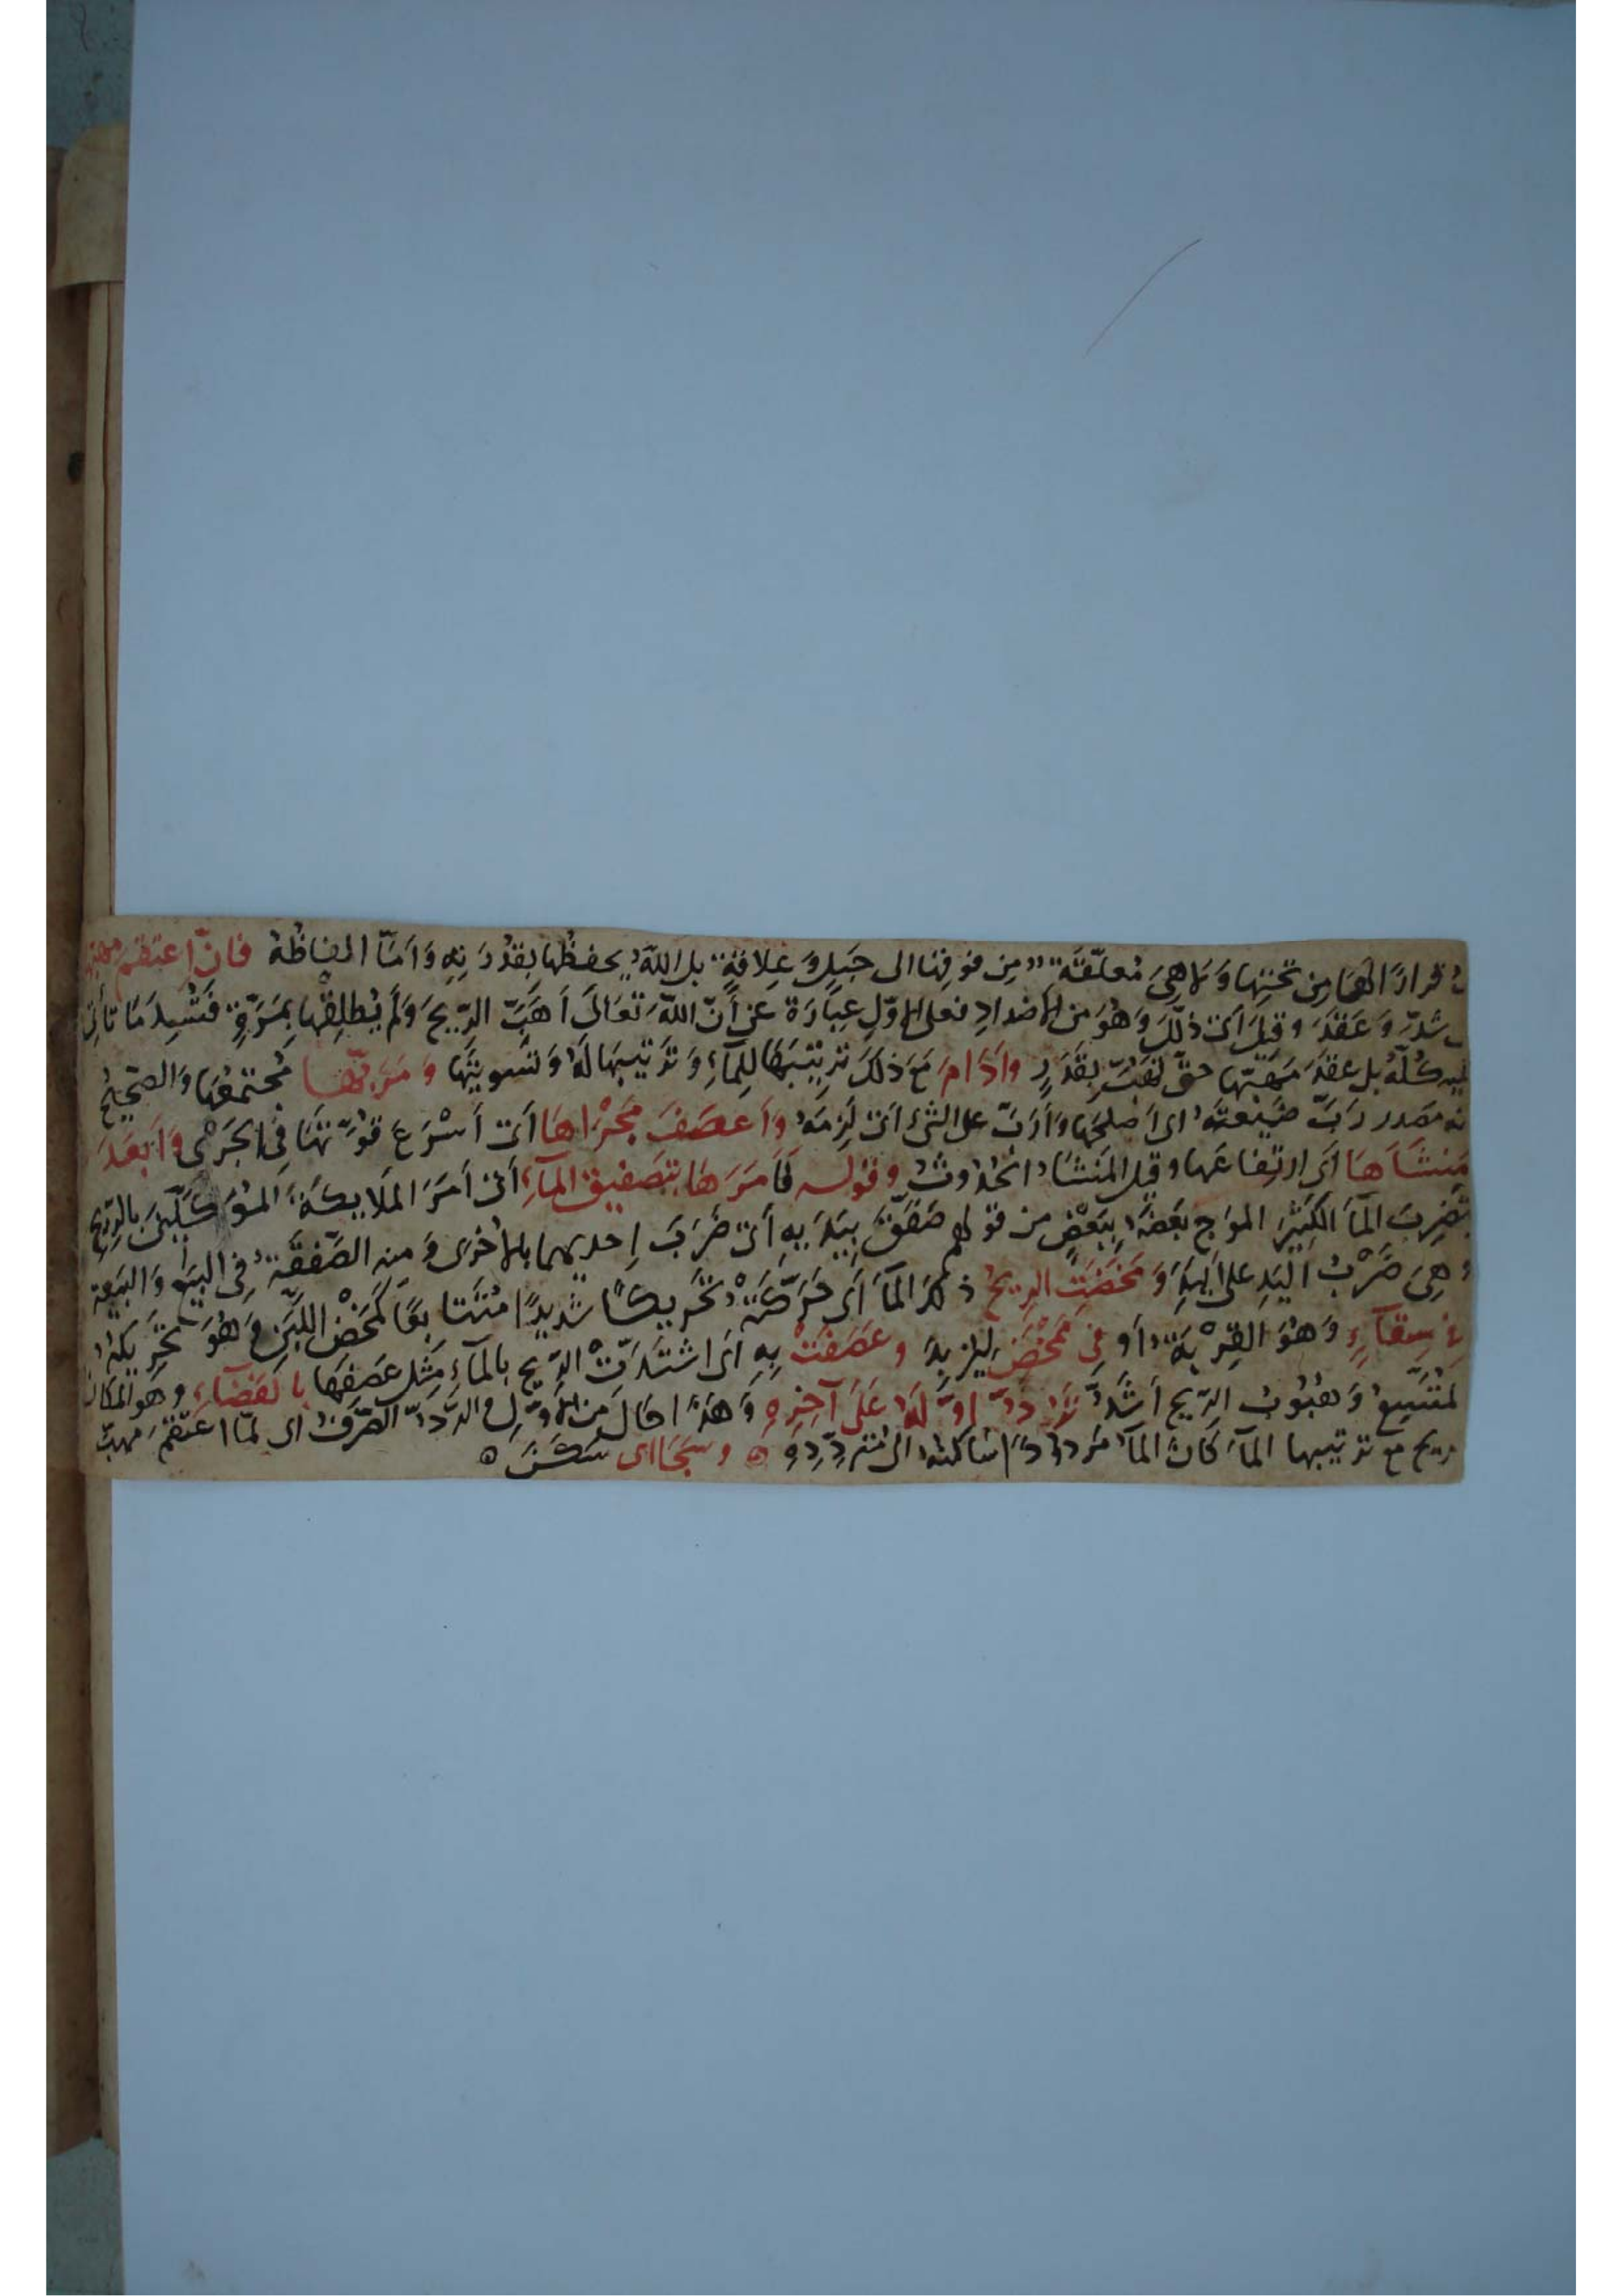 قرارًا لها مِن تحتِها وَلا هِيَ مُعلّقَةٌ مِن فوقِها الى جَبلٍ وَ عِلاقةٍ بل اللهُ يحفظُها بِقُدرَتِهِ وَاَمّا الفاظُهُ فانّ اعتقَمَ مهبّها
شدّ وَعَقَدَ وقيلَ اَىْ ذلّلَ وَهُوَ من الأضدادِ فعلى الاوّلِ عِبَارَة عن أنّ اللهَ تعَالى اَهَبّ الرّيحَ وَلَم يُطلِقْها بِمَرّةٍ فتُسِيلَ مَا تأتى
كُلَّهُ بل عقدَ مَهَبّها حتّى تَهُبّ بِقَدَرٍ واَدَامَ مَعَ ذلكَ تربيتَها لِلمآءِ وَتَرتيبَها لَهُ وَتسويتَها وَمَرَبَّها مُجتمعُها وَالصّحيحُ
انه مصدر رَبّ ضَيْعتَهُ اى اَصْلحَها وَاَرَبّ على الشئ اَى لَزِمَهُ وَاَعصَفَ مَجْرَاهَا اَىْ اَسْرَعَ قوّتهَا فى الجَرْى وَاَبعَدَ
مَنشَاَهَا اَى ارتِفاعَها وقيل المَنشَأُ الحُدُوثُ وقوله فَاَمَرَهَا بِتَصفيقِ المآءِ اَىْ اَمَرَ المَلايكةَ المُوَكّلينَ بالرّيحِ
بِضَربِ المآءِ الكثيرِ الموَاجِ بَعضَهُ بِبَعْضٍ من قولهم صَفّقَ بِيَدَيهِ اَىْ ضَرَبَ اِحديهما بالاُخرَى وَمنه الصّفقَةُ فِى البَيعِ وَالبَيعَةِ
وهِىَ ضَرْبُ اليَدِ على اليَدِ وَمَخَضَتِ الريحُ ذلكَ المآءَ اَى حَرّكَتهُ تحريكًا شديدًا مُتَتابعًا كمَخْضِ اللّبَنِ وَهُوَ تحْرِيكُهُ
فى سِقآءٍ وَهُوَ القِرْبَةُ اَو فِى مِمْخَضٍ لِيُزبِدَ وعَصَفَتْ بِهِ اَى اشتدّتْ الرّيح بالمآءِ مِثلَ عَصفِهَا بالفَضآءِ وهو المكانُ
المُتّسِعُ وَهُبُوب الرّيح اَشَدُّ تَرُدُّ اَوّلَهُ عَلى آخِرِهِ وَهَذا حَال مَن الاَوّلِ والرّدّ الصّرفُ اى لمّا اعتَقَمَ مهبّ
ريح مع ترتيبها المآءَ كانَ المآءُ مَردودًا سَاكنُهُ الى مُتردِّدِهِ ه وسجَا اى سَكَنَ ه